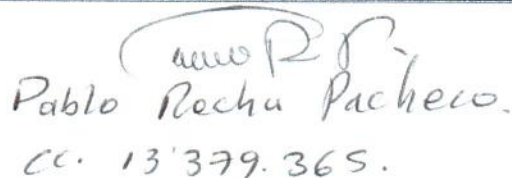 Pablo Rocha Pacheco.
CC. 13'379.365.